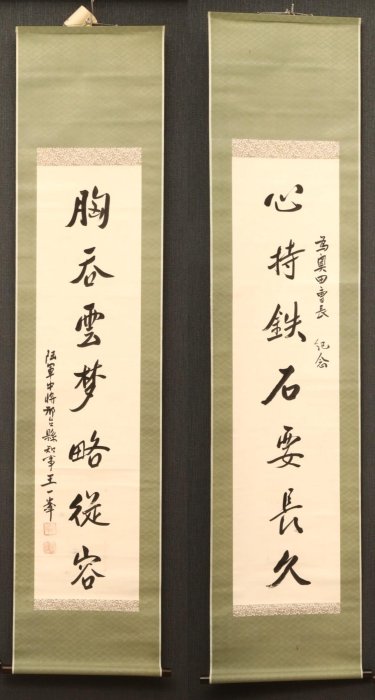 為奥田會長 紀念
心持鉄石要長久
胸吞雲梦略從容
陸軍中將邢台縣知事王一峯